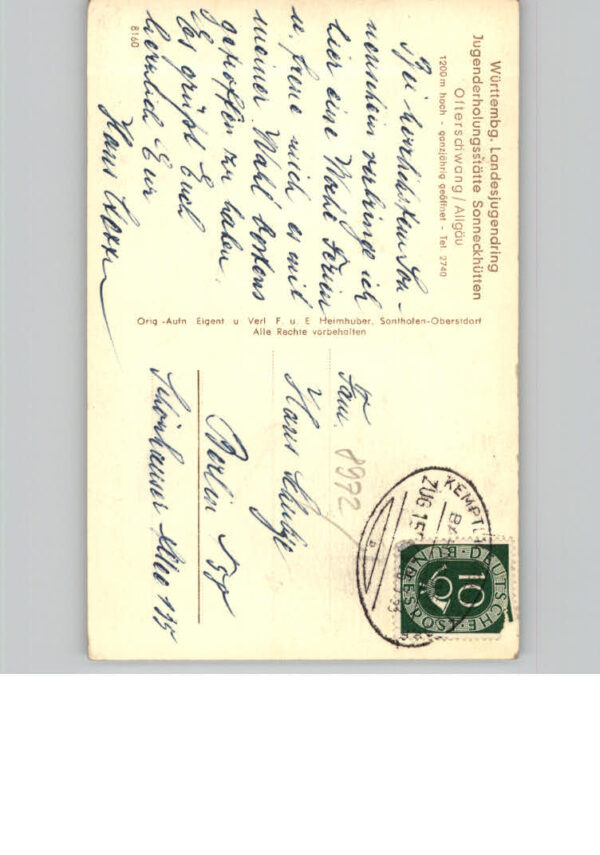 Württembg. Landesjugendring
Jugenderholungsstätte Sonneckhütten
Ofterschwang/Allgäu
1200 m hoch - ganzjährig geöffnet - Tel. 2740
Bei herrlichstem Son-
nenschein verbringe ich
hier eine Woche Ferien
u. freue mich es mit
meiner Wahl bestens
getroffen zu haben.
Es grüßt Euch
herzlich Euer
Hans
8160
Orig.-Aufn. Eigent. u. Verl. F. u. E. Heimhuber, Sonthofen-Oberstdorf
Alle Rechte vorbehalten
Fam.
Hans
Berlin
Schönhauser Allee 135
8972
KEMPTE
ZUG 15
DEUTSCHE BUNDESPOST
10